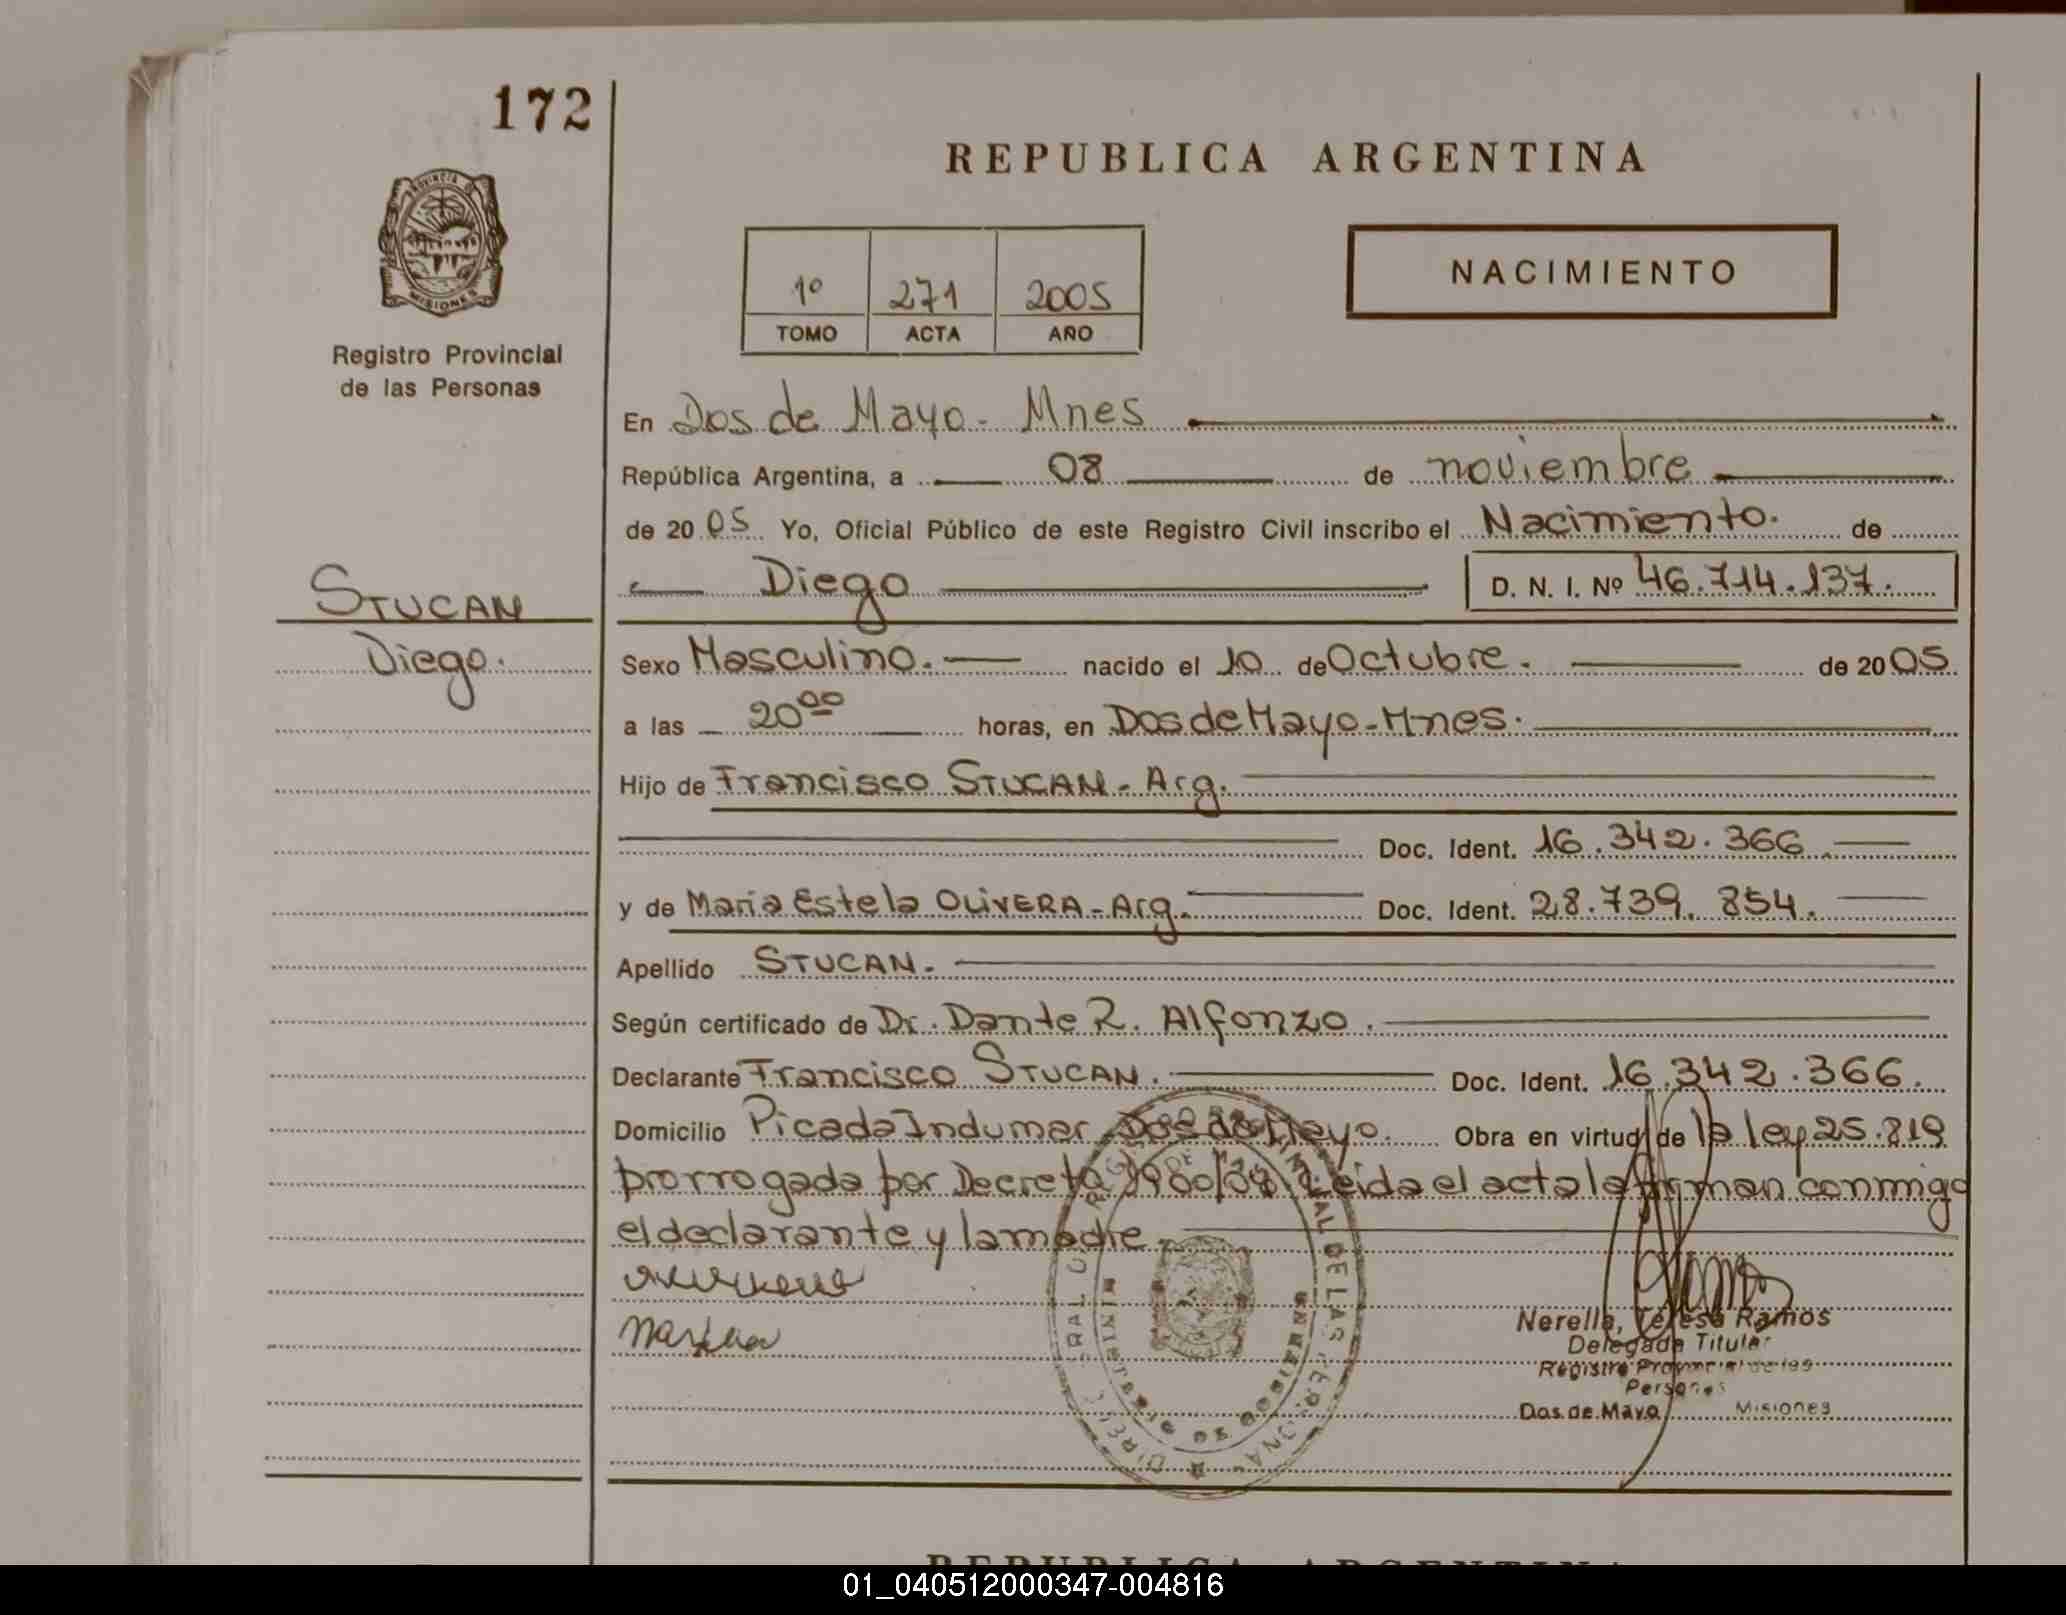 172
REPUBLICA ARGENTINA
PROVINCIA DE
MISIONES
Registro Provincial
de las Personas
1º 271 2005
TOMO ACTA AÑO
NACIMIENTO
En Dos de Mayo - Mnes
República Argentina, a 08 de noviembre
de 2005 Yo, Oficial Público de este Registro Civil inscribo el Nacimiento. de
Diego D. N. I. Nº 46.714.137.
STUCAN
Diego.
Sexo Masculino. nacido el 10 de Octubre. de 2005
a las 20 00 horas, en Dos de Mayo - Mnes.
Hijo de Francisco STUCAN - Arg.
Doc. Ident. 16.342.366
y de Maria Estela OLIVERA - Arg. Doc. Ident. 28.739.854.
Apellido STUCAN.
Según certificado de Dr. Dante R. Alfonzo.
Declarante Francisco STUCAN. Doc. Ident. 16.342.366.
Domicilio Picada Indumar Dos de Mayo. Obra en virtud de la ley 25.819
prorrogada por Decreto Leida el acta la firman conmigo
el declarante y la madre.
Nerella, Teresa Ramos
Delegada Titular
Registro Provincial de las
Personas
Dos de Mayo Misiones
REPUBLICA ARGENTINA
01_040512000347-004816